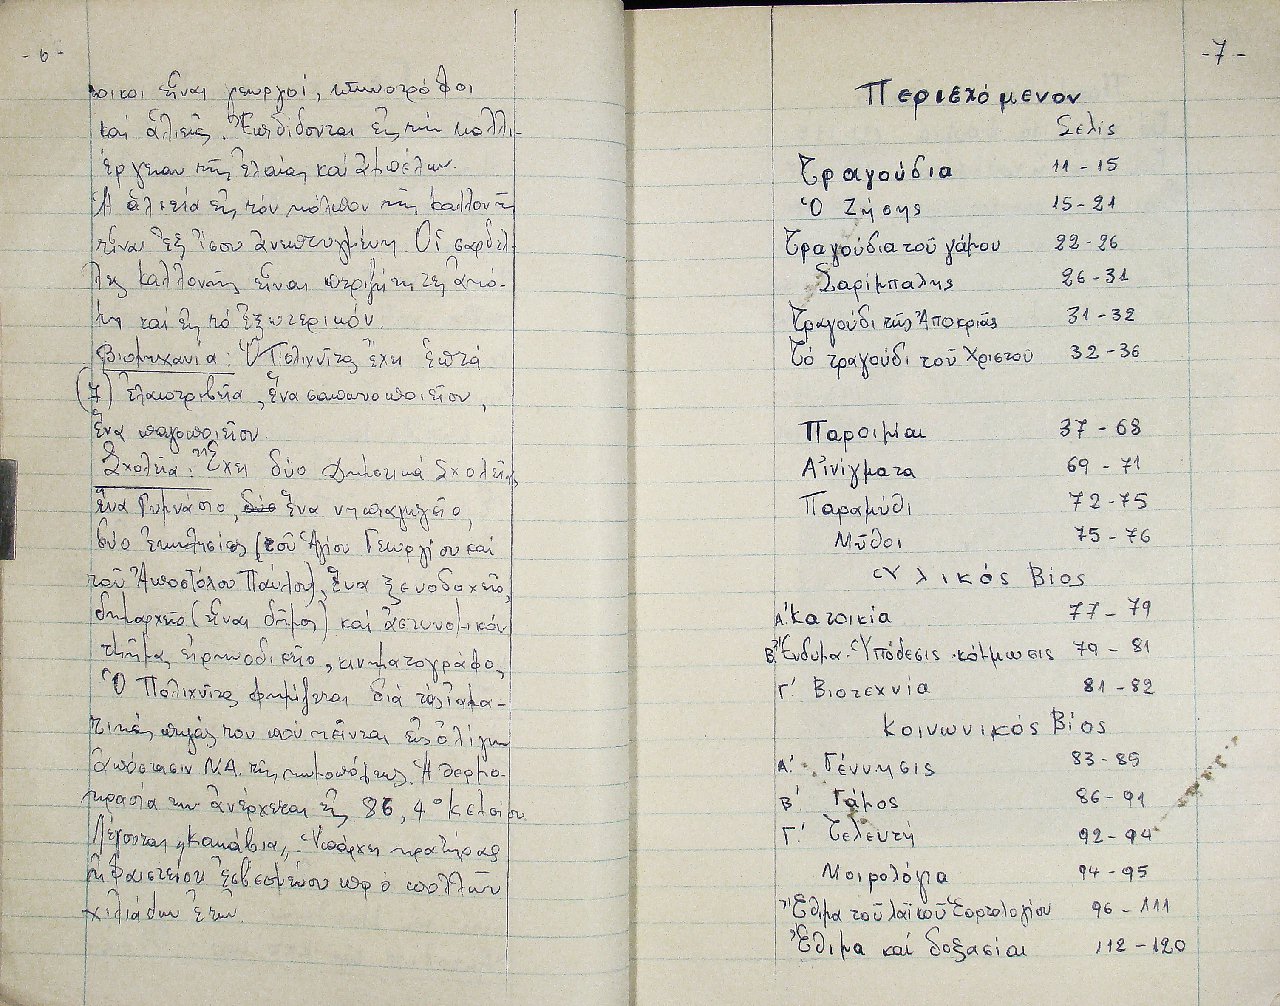 - 6 -
τοικοι εἶναι γεωργοί, κτηνοτρόφοι
καί ἁλιεῖς. Ἐπιδίδονται εἰς τήν καλλι-
έργειαν τῆς ἐλαίας καί ἀμπέλων.
Ἡ ἁλιεία εἰς τόν κόλπον τῆς Καλλονῆς
εἶναι ἐξ ἴσου ἀνεπτυγμένη. Οἱ σαρδέλ-
λες Καλλονῆς εἶναι περιζήτητες ἀκό-
μη καί εἰς τό ἐξωτερικόν.
Βιομηχανία: Ὁ Πολιχνῖτος ἔχει ἑπτά
(7) ἐλαιοτριβεῖα, ἕνα σαπωνοποιεῖον,
ἕνα παγοποιεῖον.
Σχολεῖα: Ἔχει δύο Δημοτικά Σχολεῖα,
ἕνα Γυμνάσιο, δύο ἕνα νηπιαγωγεῖο,
δύο ἐκκλησίες (τοῦ Ἁγίου Γεωργίου καί
τοῦ Ἀποστόλου Παύλου), ἕνα ξενοδοχεῖο,
δημαρχεῖο (εἶναι δῆμος) καί ἀστυνομικόν
τμῆμα, εἰρηνοδικεῖο, κινηματογράφο,
Ὁ Πολιχνῖτος φημίζεται διά τάς ἰαμα-
τικές πηγάς του πού κεῖνται εἰς ὀλίγην
ἀπόστασιν Ν.Α. τῆς κωμοπόλεως. Ἡ θερμο-
κρασία των ἀνέρχεται εἰς 86,4° Κελσίου
Λέγονται „Καπάβια„ Ὑπάρχει κρατήρας
ἡφαιστείου ἐσβεσμένου πρό πολλῶν
χιλιάδων ἐτῶν.
- 7 -
Περιεχόμενον
Σελίς
Τραγούδια 11 - 15
Ὁ Ζήσης 15 - 21
Τραγούδια τοῦ γάμου 22 - 26
Σαρίμπαλης 26 - 31
Τραγούδι τῆς Ἀποκριᾶς 31 - 32
Τό τραγούδι τοῦ Χριστοῦ 32 - 36
Παροιμίαι 37 - 68
Αἰνίγματα 69 - 71
Παραμύθι 72 - 75
Μῦθοι 75 - 76
Ὑλικός Βίος
Α΄ Κατοικία 77 - 79
Β΄ Ἔνδυμα - Ὑπόδεσις - κόμμωσις 79 - 81
Γ΄ Βιοτεχνία 81 - 82
Κοινωνικός Βίος
Α΄ Γέννησις 83 - 85
Β΄ Γάμος 86 - 91
Γ΄ Τελευτή 92 - 94
Μοιρολόγια 94 - 95
Ἔθιμα τοῦ λαϊκοῦ ἑορτολογίου 96 - 111
Ἔθιμα καί δοξασίαι 112 - 120